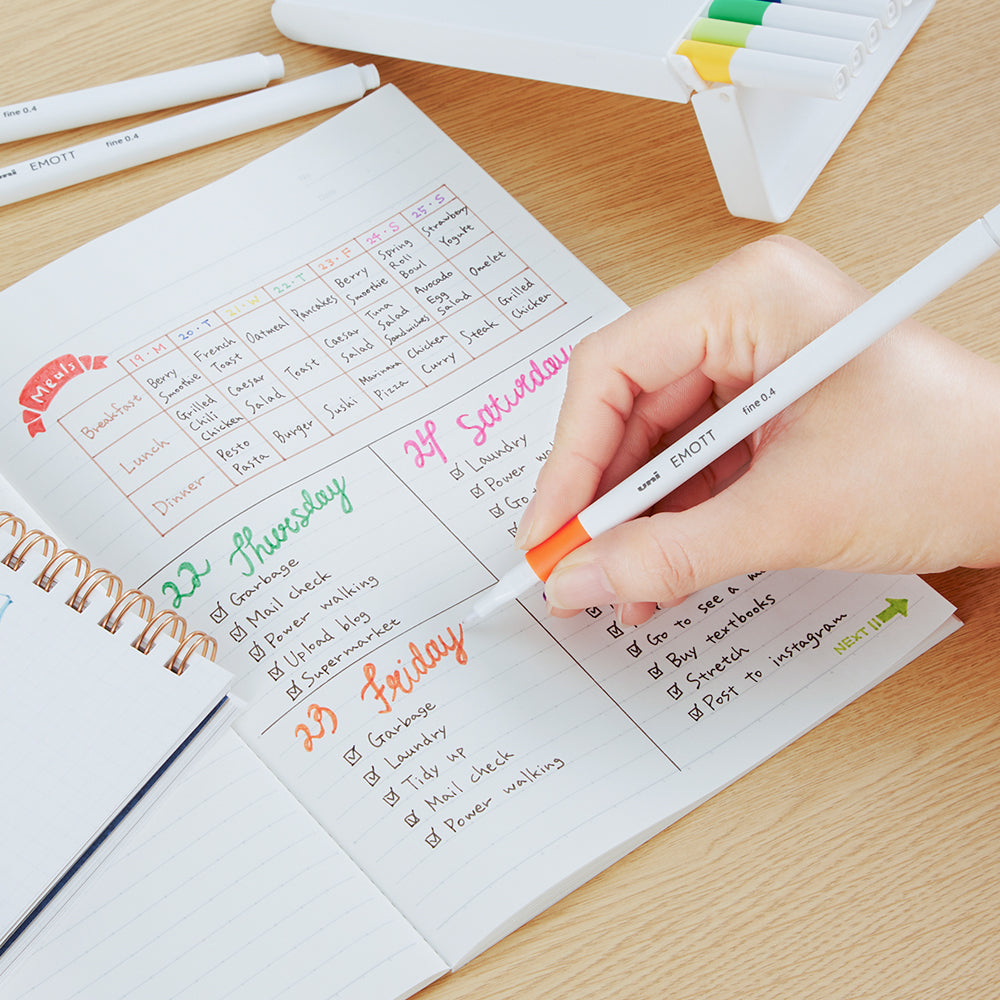 fine 0.4
uni EMOTT fine 0.4
Meals
19・M
20・T
21・W
22・T
23・F
24・S
25・S
Breakfast
Berry
Smoothie
French
Toast
Oatmeal
Pancakes
Berry
Smoothie
Spring
Roll
Bowl
Strawberry
Yogult
Lunch
Grilled
Chili
Chicken
Caesar
Salad
Toast
Caesar
Salad
Tuna
Salad
Sandwiches
Avocado
Egg
Salad
Omelet
Dinner
Pesto
Pasta
Burger
Sushi
Marinara
Pizza
Chicken
Curry
Steak
Grilled
Chicken
22 Thursday
Garbage
Mail check
Power walking
Upload blog
Supermarket
23 Friday
Garbage
Laundry
Tidy up
Mail check
Power walking
24 Saturday
Laundry
Power
Go
Go to see a
Buy textbooks
Stretch
Post to instagram
NEXT
uni EMOTT fine 0.4